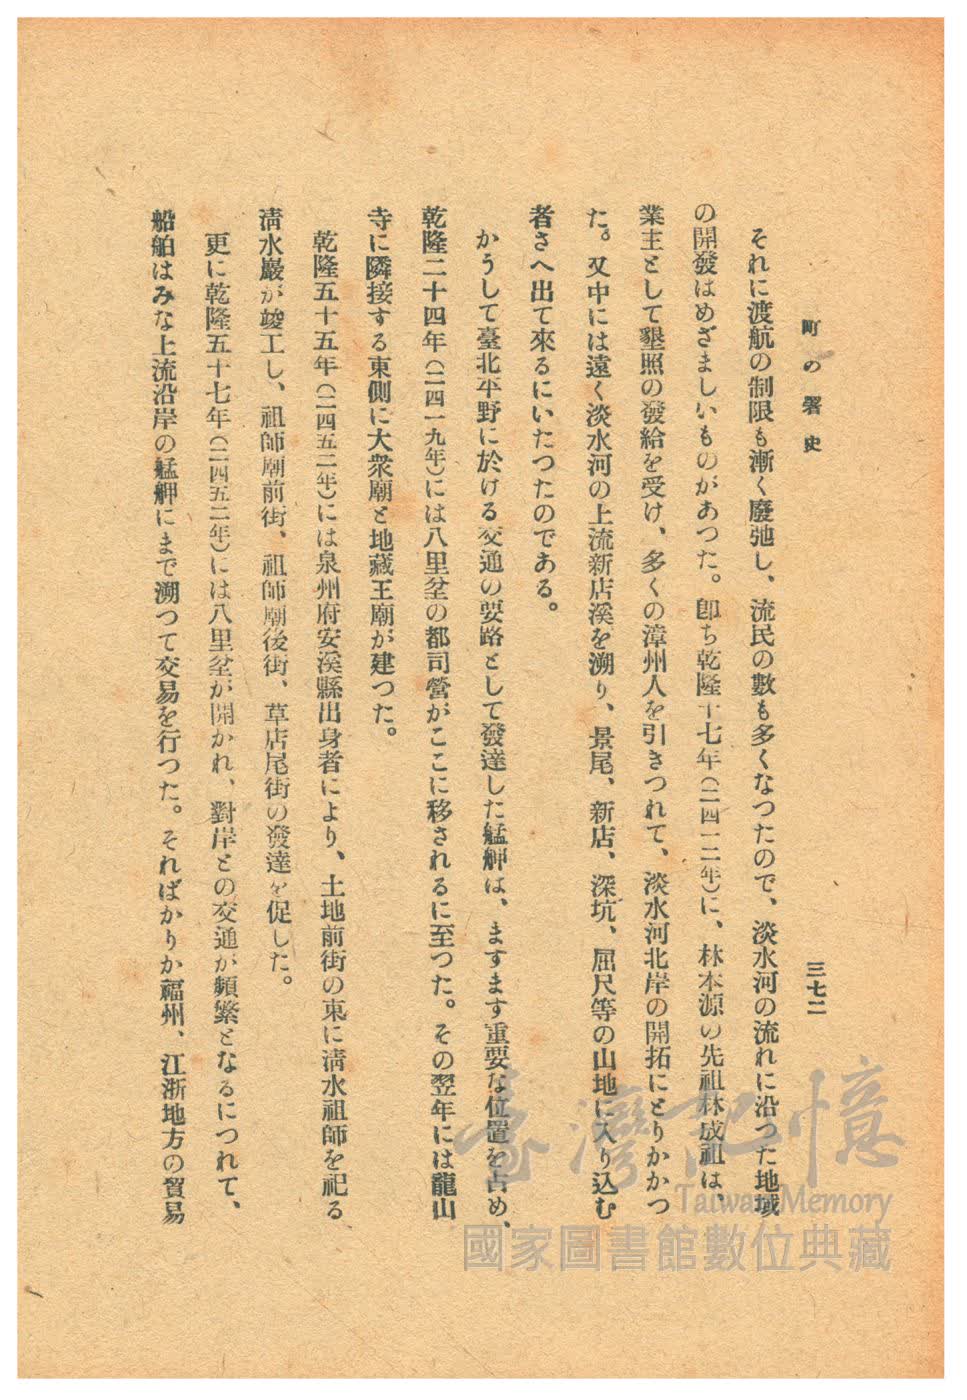 町の畧史
三七二
それに渡航の制限も漸く廢弛し、流民の數も多くなつたので、淡水河の流れに沿つた地域
の開發はめざましいものがあつた。卽ち乾隆十七年(二四一二年)に、林本源の先祖林成祖は、
業主として墾照の發給を受け、多くの漳州人を引きつれて、淡水河北岸の開拓にとりかかつ
た。又中には遠く淡水河の上流新店溪を溯り、景尾、新店、深坑、屈尺等の山地に入り込む
者さへ出て來るにいたつたのである。
かうして臺北平野に於ける交通の要路として發達した艋舺は、ますます重要な位置を占め、
乾隆二十四年(二四一九年)には八里坌の都司營がここに移されるに至つた。その翌年には龍山
寺に隣接する東側に大衆廟と地藏王廟が建つた。
乾隆五十五年(二四五〇年)には泉州府安溪縣出身者により、土地前街の東に淸水祖師を祀る
淸水巖が竣工し、祖師廟前街、祖師廟後街、草店尾街の發達を促した。
更に乾隆五十七年(二四五二年)には八里坌が開かれ、對岸との交通が頻繁となるにつれて、
船舶はみな上流沿岸の艋舺にまで溯つて交易を行つた。そればかりか福州、江浙地方の貿易
臺灣記憶
Taiwan Memory
國家圖書館數位典藏